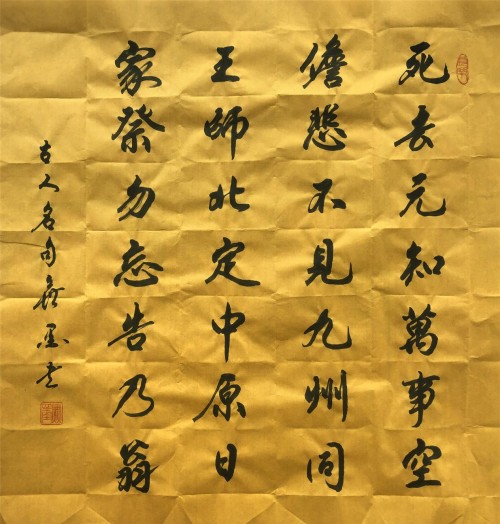 死去元知萬事空
儋悲不見九州同
王師北定中原日
家祭勿忘告乃翁
古人名句